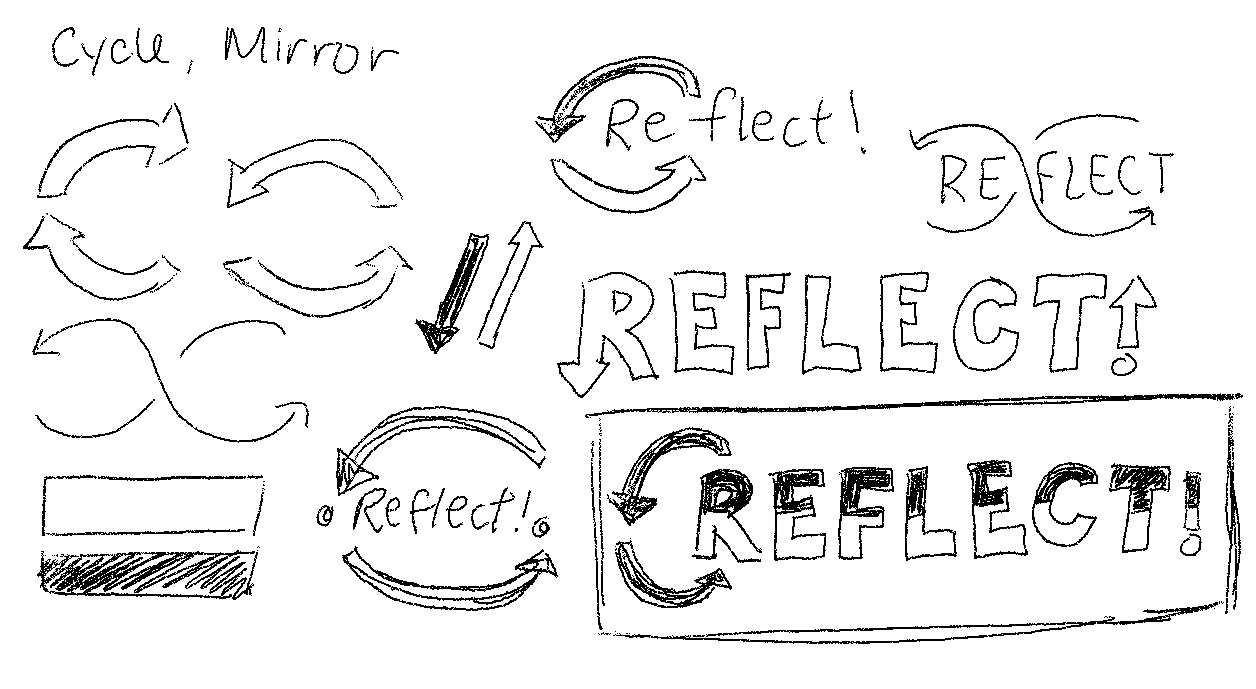 Cycle, Mirror
Reflect!
REFLECT
REFLECT!
Reflect!
REFLECT!